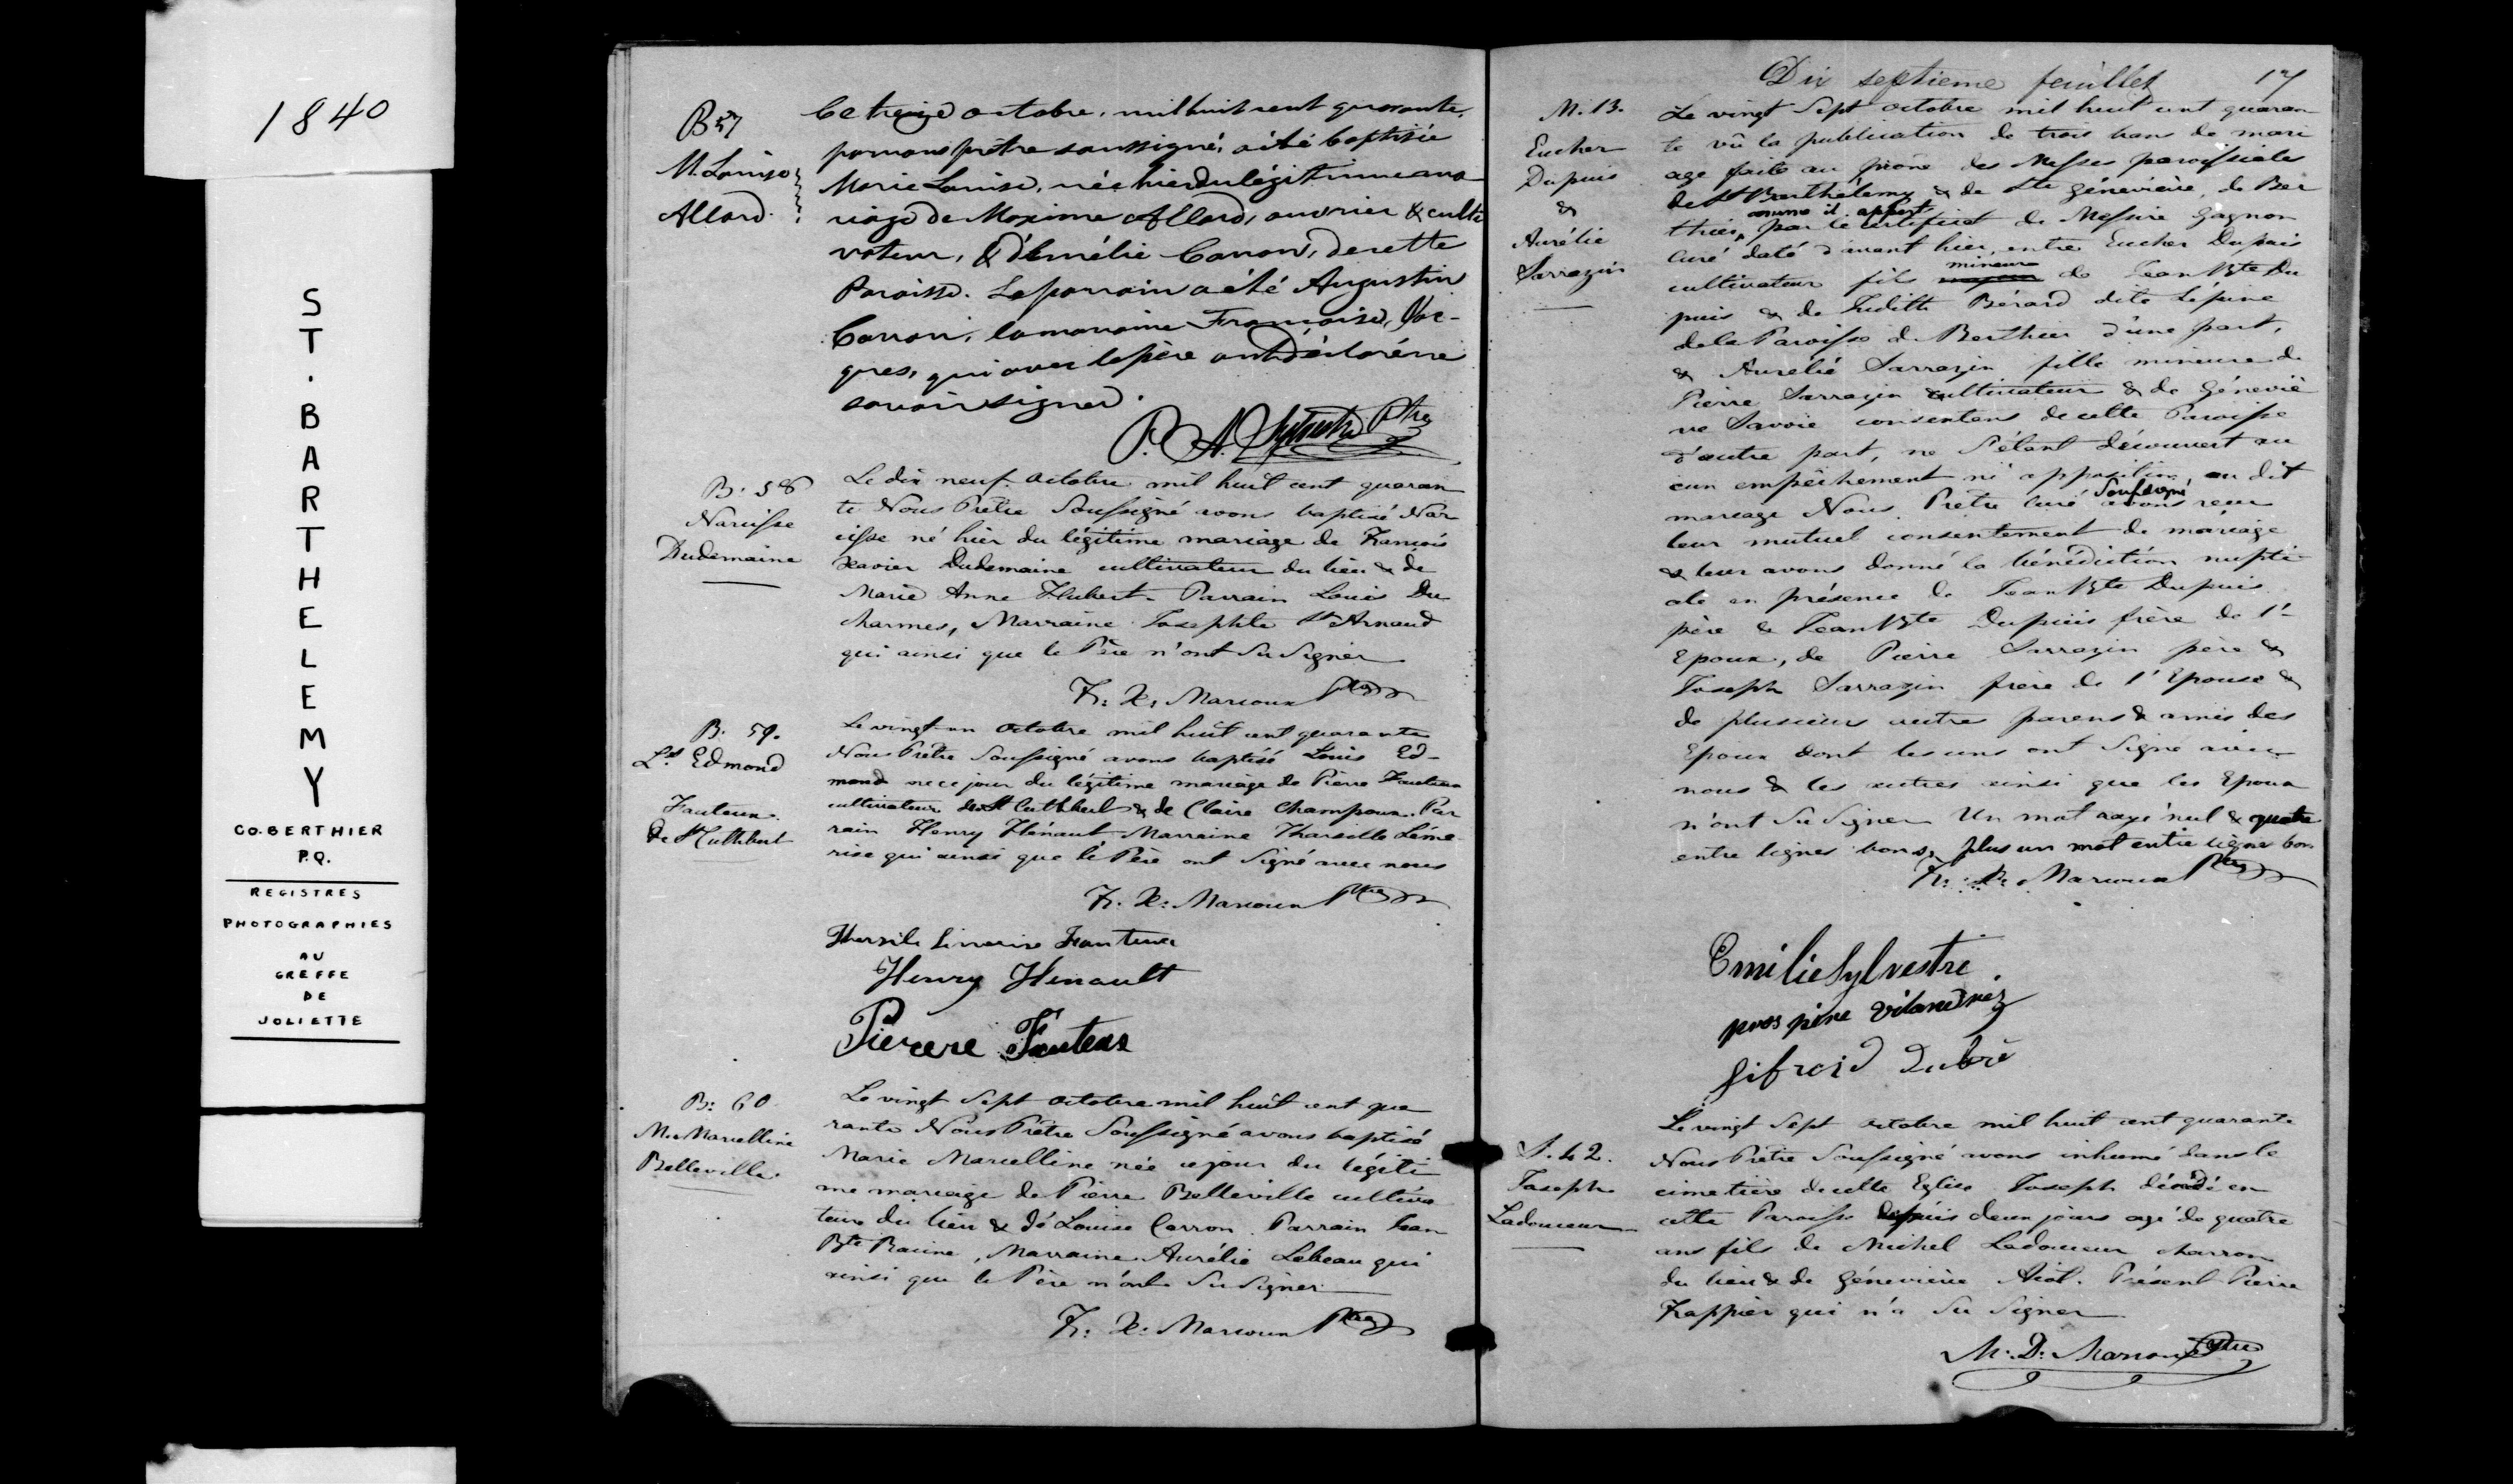 1840
ST. BARTHELEMY
CO. BERTHIER
P.Q.
REGISTRES
PHOTOGRAPHIES
AU
GREFFE
DE
JOLIETTE
B 57
M. Louise
Allard.
Ce treize octobre, mil huit cent quarante,
par nous prêtre soussigné, a été baptisée
Marie Louise, née hier du légitime ma
riage de Maxime Allard, ouvrier & culti
vateur, & d'Emélie Carron, de cette
Paroisse. Le parrain a été Augustin
Carron, la marraine Françoise Jac-
ques, qui avec le père ont déclaré ne
savoir signer.
P. A. Sylvestre Ptre
B. 58
Narcisse
Dudemaine
Le dix neuf octobre mil huit cent quaran
te Nous Prêtre Soussigné avons baptisé Nar
cisse né hier du légitime mariage de François
Xavier Dudemaine cultivateur du lieu & de
Marie Anne Hubert. Parrain Louis Du
charmes, Marraine Josephte St Arnaud
qui ainsi que le Père n'ont Su Signer
F. X. Marcoux Ptre
B. 59.
Ls Edmond
Fauteux
de St Cuthbert
Le vingt un octobre mil huit cent quarante
Nous Prêtre Soussigné avons baptisé Louis Ed-
mond né ce jour du légitime mariage de Pierre Fauteux
cultivateur de St Cuthbert & de Claire Champoux. Par
rain Henry Hénault Marraine Tharsille Léme
rise qui ainsi que le Père ont Signé avec nous
F. X. Marcoux Ptre
Fauteux
Henry Henault
Pierere Fauteux
B: 60
M. Marcelline
Belleville.
Le vingt Sept octobre mil huit cent qua
rante Nous Prêtre Soussigné avons baptisé
Marie Marcelline née ce jour du légiti
me mariage de Pierre Belleville cultiva
teur du lieu & de Louise Carron. Parrain Jean
Bte Racine, Marraine Aurélie Lebeau qui
ainsi que le Père n'ont Su Signer
F. X. Marcoux Ptre
Dix septieme feuillet 17
M. 13.
Eucher
Dupuis
&
Aurélie
Sarrazin
Le vingt Sept octobre mil huit cent quaran
te vû la publication de trois bans de mari
age faite au prône des Messes paroissiales
de St Barthélemy & de Ste Géneviève de Ber
thier, comme il appert par le certificat de Messire Gagnon
Curé daté d'avant hier, entre Eucher Dupuis
cultivateur fils mineur de Jean Bte Du
puis & de Judith Bérard dite Lépine
de la Paroisse de Berthier d'une part,
& Aurélie Sarrazin fille mineure de
Pierre Sarrazin cultivateur & de Géneviè
ve Savoie consentans de cette Paroisse
d'autre part, ne S'étant découvert au
cun empêchement ni opposition, au dit
mariage Nous Prêtre Curé Soussigné avons reçu
leur mutuel consentement de mariage
& leur avons donné la bénédiction nupti
ale en présence de Jean Bte Dupuis
père & Jean Bte Dupuis frère de l'-
Epoux, de Pierre Sarrazin père &
Joseph Sarrazin frère de l'Epouse &
de plusieurs autre parens & amis des
Epoux dont les uns ont Signé avec
nous & les autres ainsi que les Epoux
n'ont Su Signer Un mot rayé nul & quatre
entre lignes bons, plus un mot entre ligne bon
F. X. Marcoux Ptre
Emilie Sylvestre.
prospère
Dubé
S. 42.
Joseph
Ladouceur
Le vingt Sept octobre mil huit cent quarante
Nous Prêtre Soussigné avons inhumé dans le
cimetière de cette Eglise Joseph décédé en
cette Paroisse depuis deux jours agé de quatre
ans fils de Michel Ladouceur charron
du lieu & de Géneviève. Présent Pierre
Frappier qui n'a Su Signer
M. D. Marcoux Ptre